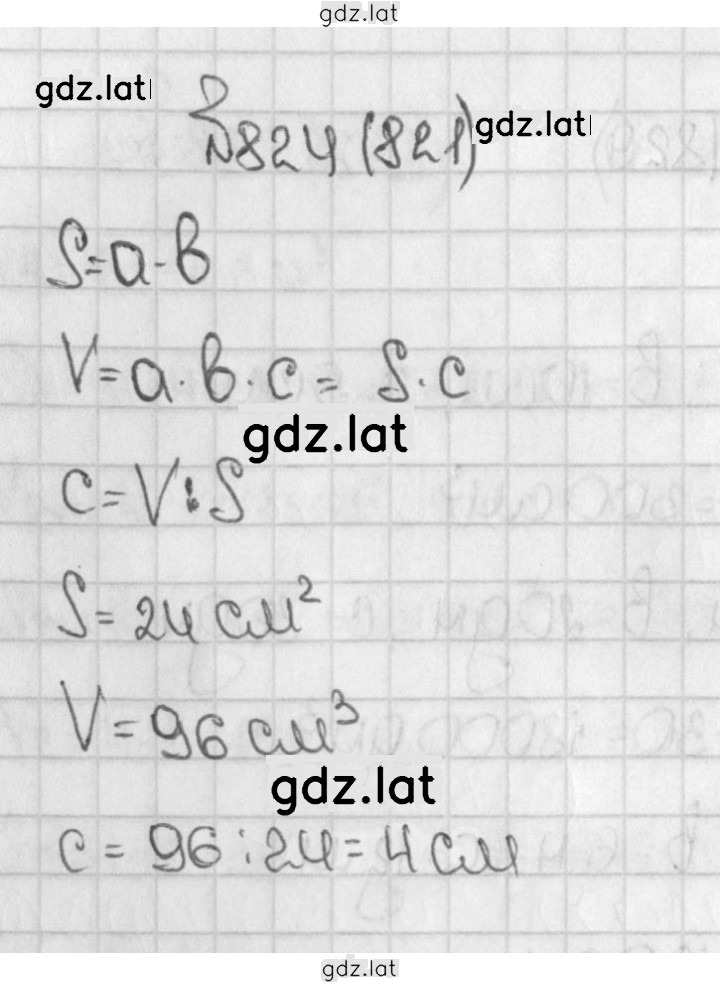 gdz.lat
gdz.lat
№824 (821)
gdz.lat
S=a·b
V=a·b·c= S·c
gdz.lat
c=V:S
S=24 см²
V=96 см³
gdz.lat
c=96:24=4 см
gdz.lat